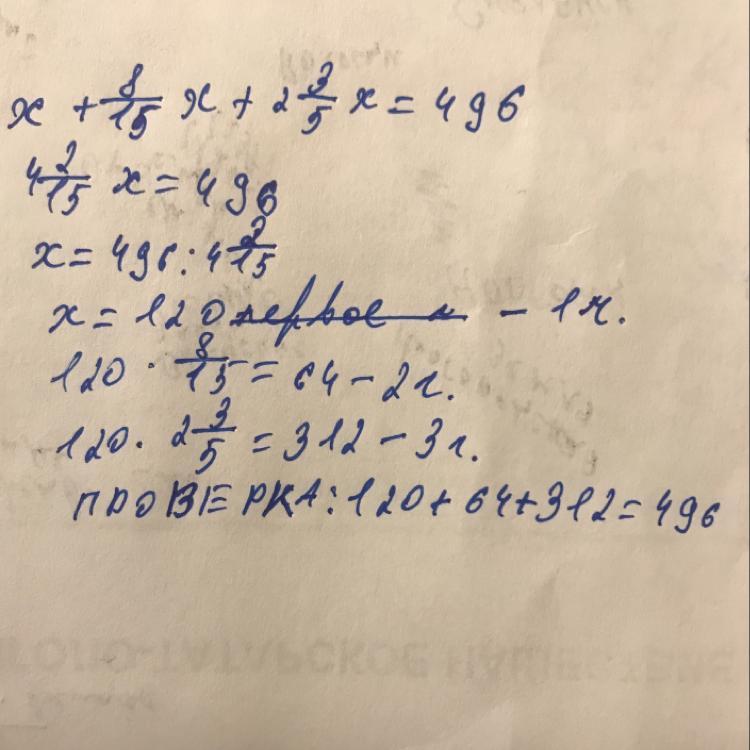 x + 8/15 x + 2 3/5 x = 496
4 2/15 x = 496
x = 496 : 4 2/15
x = 120 первое - 1ч.
120 · 8/15 = 64 - 2ч.
120 · 2 3/5 = 312 - 3ч.
ПРОВЕРКА: 120 + 64 + 312 = 496
ТАТАРСКОЕ НАШЕСТВИЕ